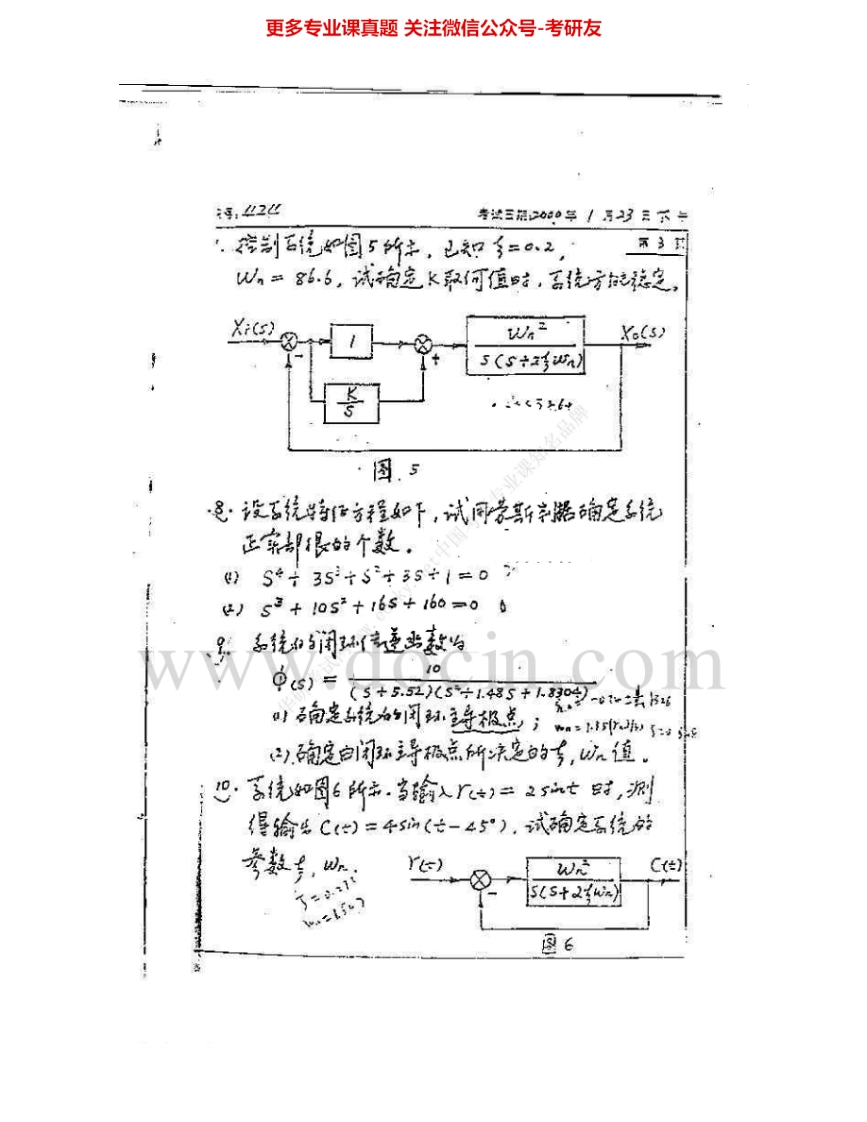 更多专业课真题 关注微信公众号-考研友
考试日期:2000年1月23日下午
第3页
控制系统如图5所示,已知ξ=0.2,
Wn=86.6,试确定K取何值时,系统方能稳定。
Xi(S)
-
1
+
K
S
Wn²
S(S+2ξWn)
Xo(S)
图.5
8.设系统特征方程如下,试用劳斯判据确定系统
正实部根的个数。
(1) S⁴+3S³+S²+3S+1=0
(2) S³+10S²+16S+160=0
www.docin.com
9.系统的闭环传递函数为
Φ(S)=
10
(S+5.52)(S²+1.48S+1.8304)
(1)确定系统的闭环主导极点;
(2)确定由闭环主导极点所决定的ξ,Wn值。
10.系统如图6所示.当输入r(t)=2sint时,测
得输出C(t)=4Sin(t-45°),试确定系统的
参数ξ,Wn.
r(t)
-
Wn²
S(S+2ξWn)
C(t)
图6